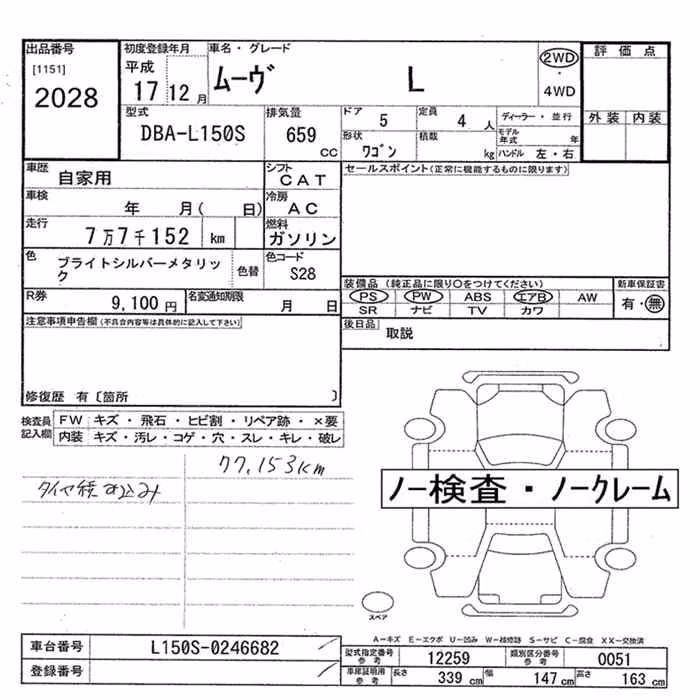 出品番号 初度登録年月 車名・グレード 評価点
[1151] 平成 ムーヴ L 2WD
2028 17 12 月 ・ 4WD
型式 排気量 ドア 5 定員 4 人 ディーラー・並行 外装 内装
DBA-L150S 659 cc 形状 ワゴン 積載 kg モデル年式 年
ハンドル 左・右
車歴 自家用 シフト CAT セールスポイント(正常に機能するものに限ります)
車検 年 月( 日) 冷房 AC
走行 7万7千152 km 燃料 ガソリン
色 ブライトシルバーメタリック 色替 色コード S28
装備品 (純正品に限り○をつけてください) 新車保証書
R券 9,100 円 名変通知期限 月 日 PS PW ABS エアB AW 有・無
SR ナビ TV カワ
注意事項申告欄(不具合内容等は具体的に記入して下さい) 後日品 取説
修復歴 有〔箇所 〕
検査員記入欄 FW キズ・飛石・ヒビ割・リペア跡・×要
内装 キズ・汚レ・コゲ・穴・スレ・キレ・破レ
77,153km
タイヤ積み込み
ノー検査・ノークレーム
スペア
A-キズ E-エクボ U-凹み W-補修跡 S-サビ C-腐食 XX-交換済
車台番号 L150S-0246682 型式指定番号参考 12259 類別区分番号参考 0051
登録番号 車庫証明用参考 長さ 339 cm 幅 147 cm 高さ 163 cm